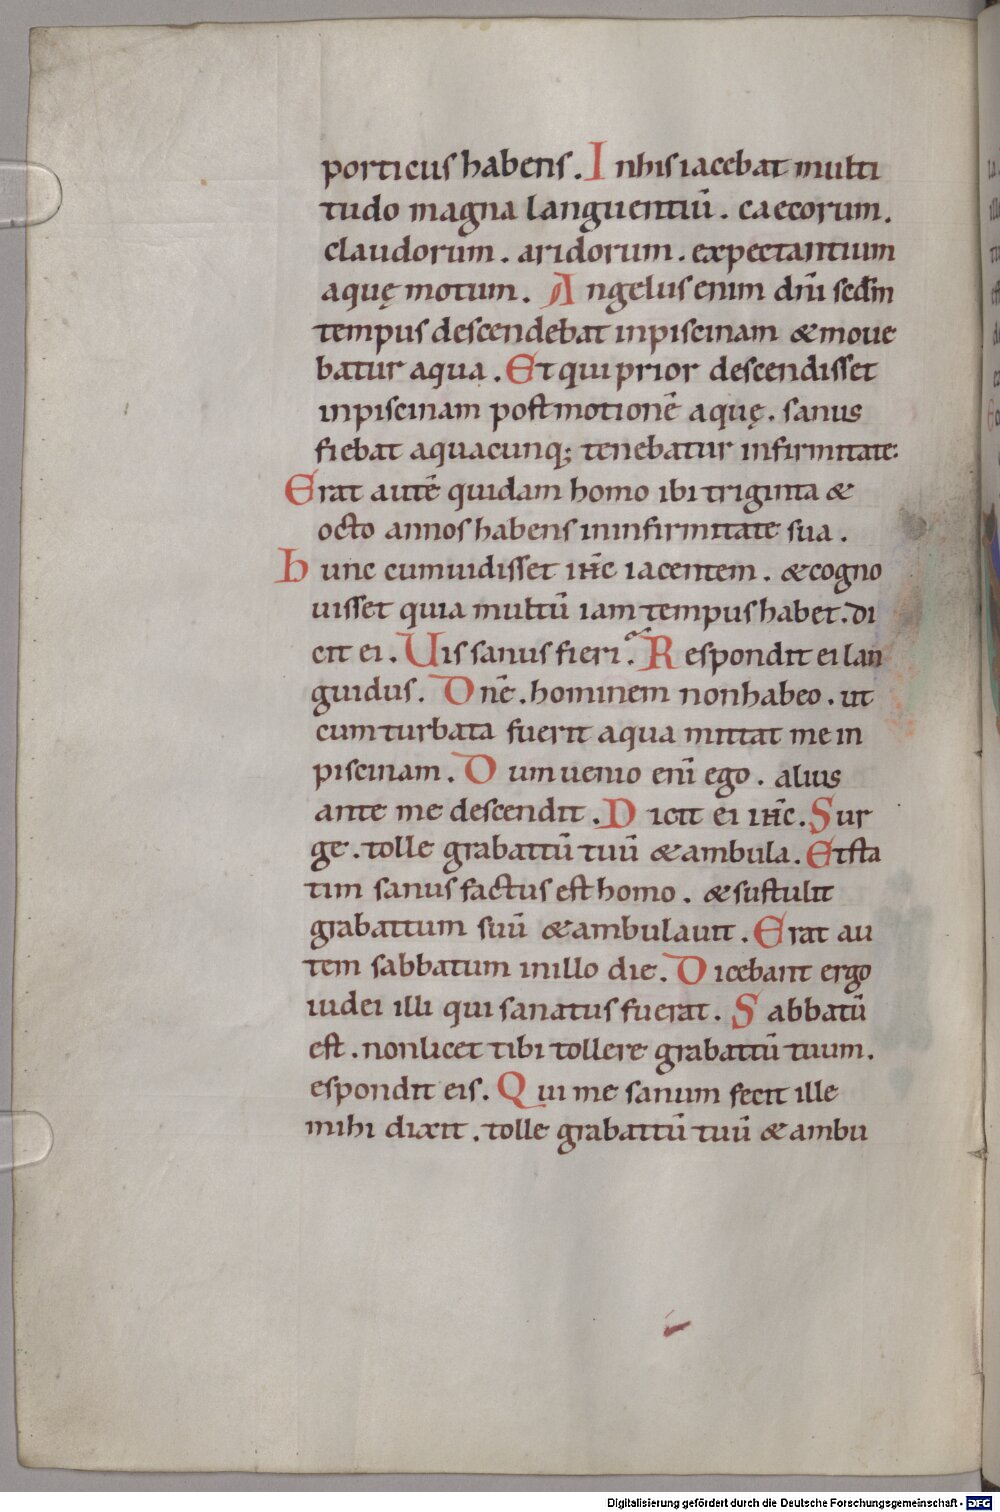 porticus habens. In his iacebat multi
tudo magna languentiū. caecorum.
claudorum. aridorum. expectantium
aquę motum. Angelus enim dn̄i sedm̄
tempus descendebat inpiscinam & moue
batur aqua. Et qui prior descendisset
inpiscinam post motionē aquę. sanus
fiebat aquacunq; tenebatur infirmitate:
Erat autē quidam homo ibi triginta &
octo annos habens ininfirmitate sua.
hunc cum uidisset ihc̄ iacentem. & cogno
uisset quia multū iam tempus habet. di
cit ei. Uis sanus fieri? Respondit ei lan
guidus. Dnē. hominem non habeo. ut
cum turbata fuerit aqua mittat me in
piscinam. Dum uenio eni̅ ego. alius
ante me descendit. Dicit ei ihc̄. Sur
ge. tolle grabattū tuū & ambula. Et sta
tim sanus factus est homo. & sustulit
grabattum suū & ambulauit. Erat au
tem sabbatum inillo die. Dicebant ergo
iudei illi qui sanatus fuerat. Sabbatū
est. non licet tibi tollere grabattū tuum.
espondit eis. Qui me sanum fecit ille
mihi dixit. tolle grabattū tuū & ambu
Digitalisierung gefördert durch die Deutsche Forschungsgemeinschaft - DFG